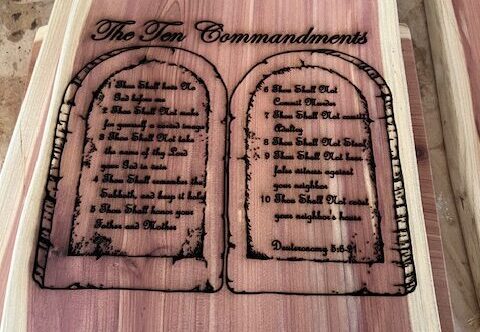 The Ten Commandments
1 Thou Shall have No
God before me
2 Thou Shall Not make
for yourself a carved image
3 Thou Shall Not take
the name of thy Lord
your God in vain
4 Thou Shall remember the
Sabbath and keep it holy
5 Thou Shall honor your
Father and Mother
6 Thou Shall Not
Commit Murder
7 Thou Shall Not commit
8 Thou Shall Not Steal
9 Thou Shall Not bear
false witness against
your neighbor
10 Thou Shall Not covet
your neighbor's house
Deuteronomy 5:6-21